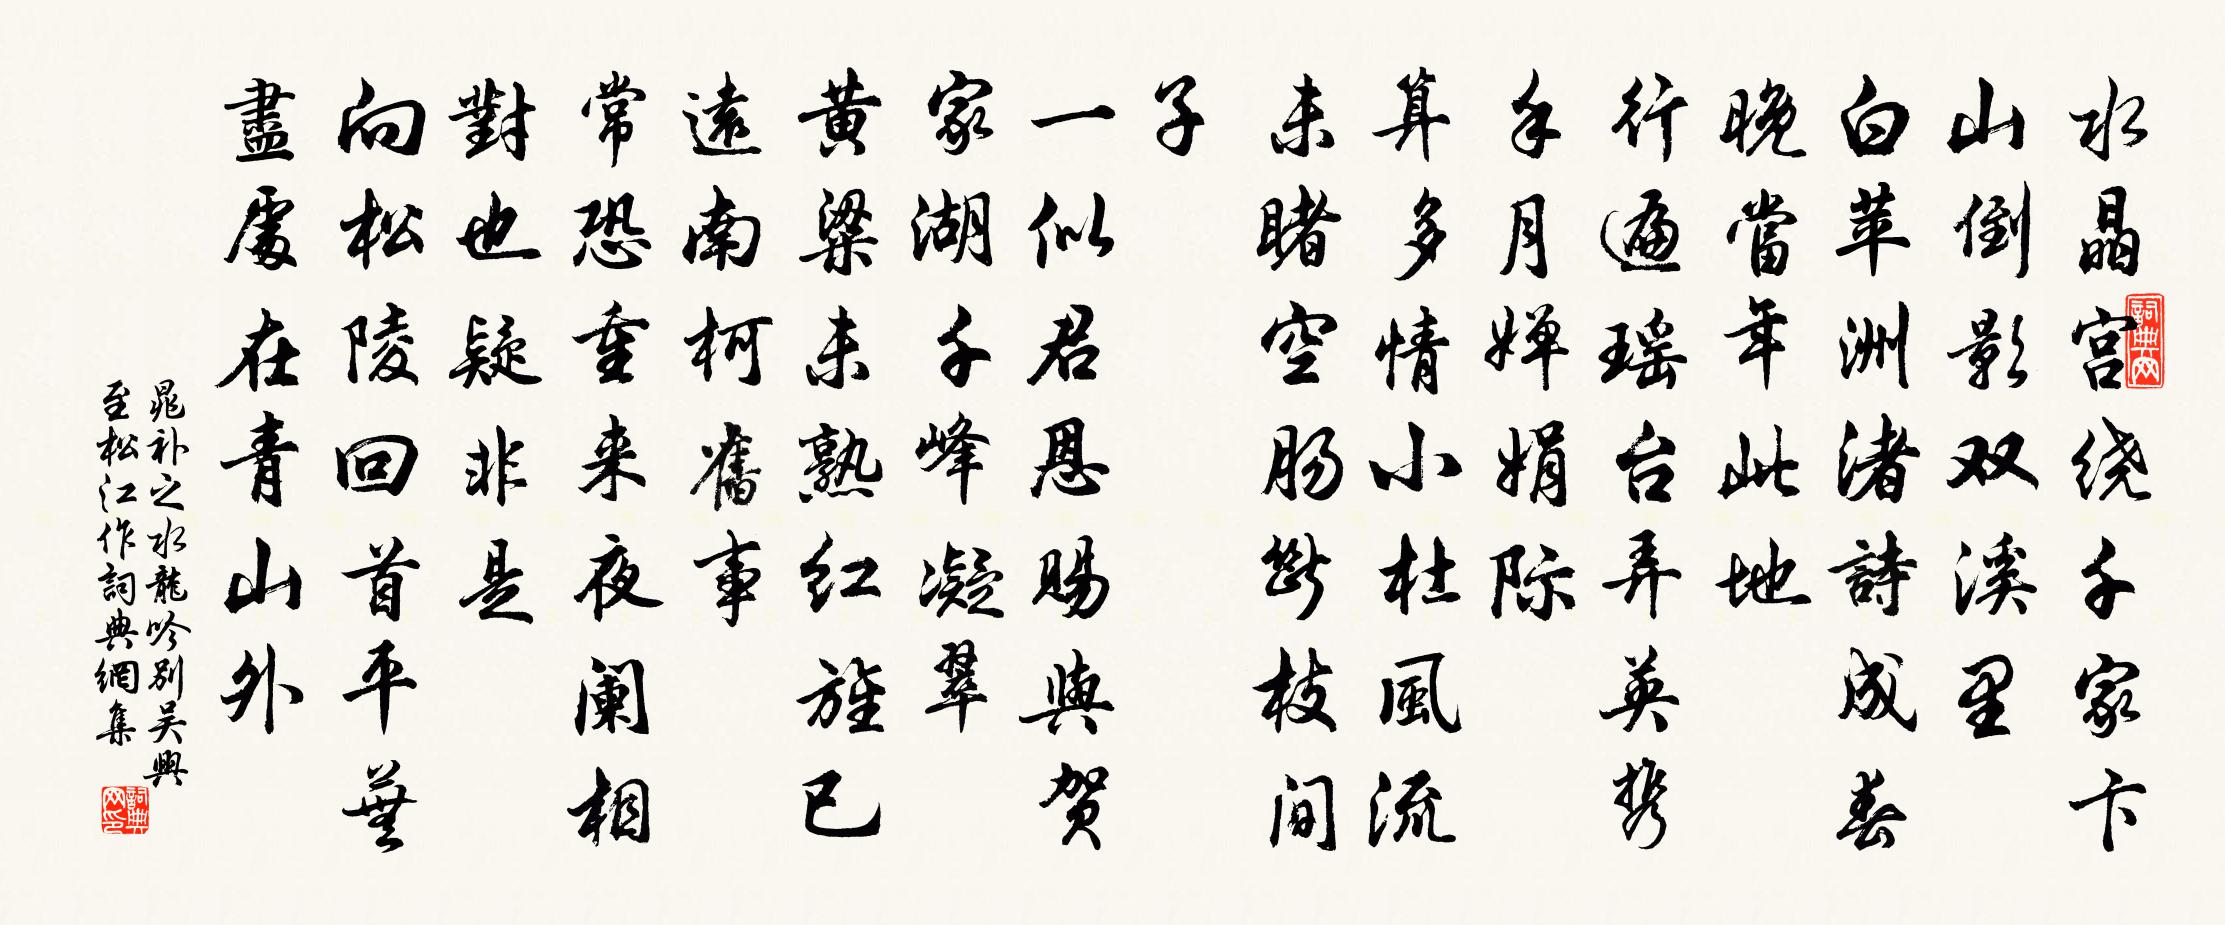 水晶宫绕千家卞
山倒影双溪里
白苹洲渚詩成春
晚當年此地
行遍瑶台弄英携
手月婵娟际
算多情小杜風流
未睹空肠断枝间
子
一似君恩賜與贺
家湖千峰凝翠
黄粱未熟红旌已
遠南柯舊事
常恐重来夜阑相
對也疑非是
向松陵回首平蕪
盡處在青山外
晁补之水龍吟別吴興
至松江作詞典網集
詞典网
詞典网印